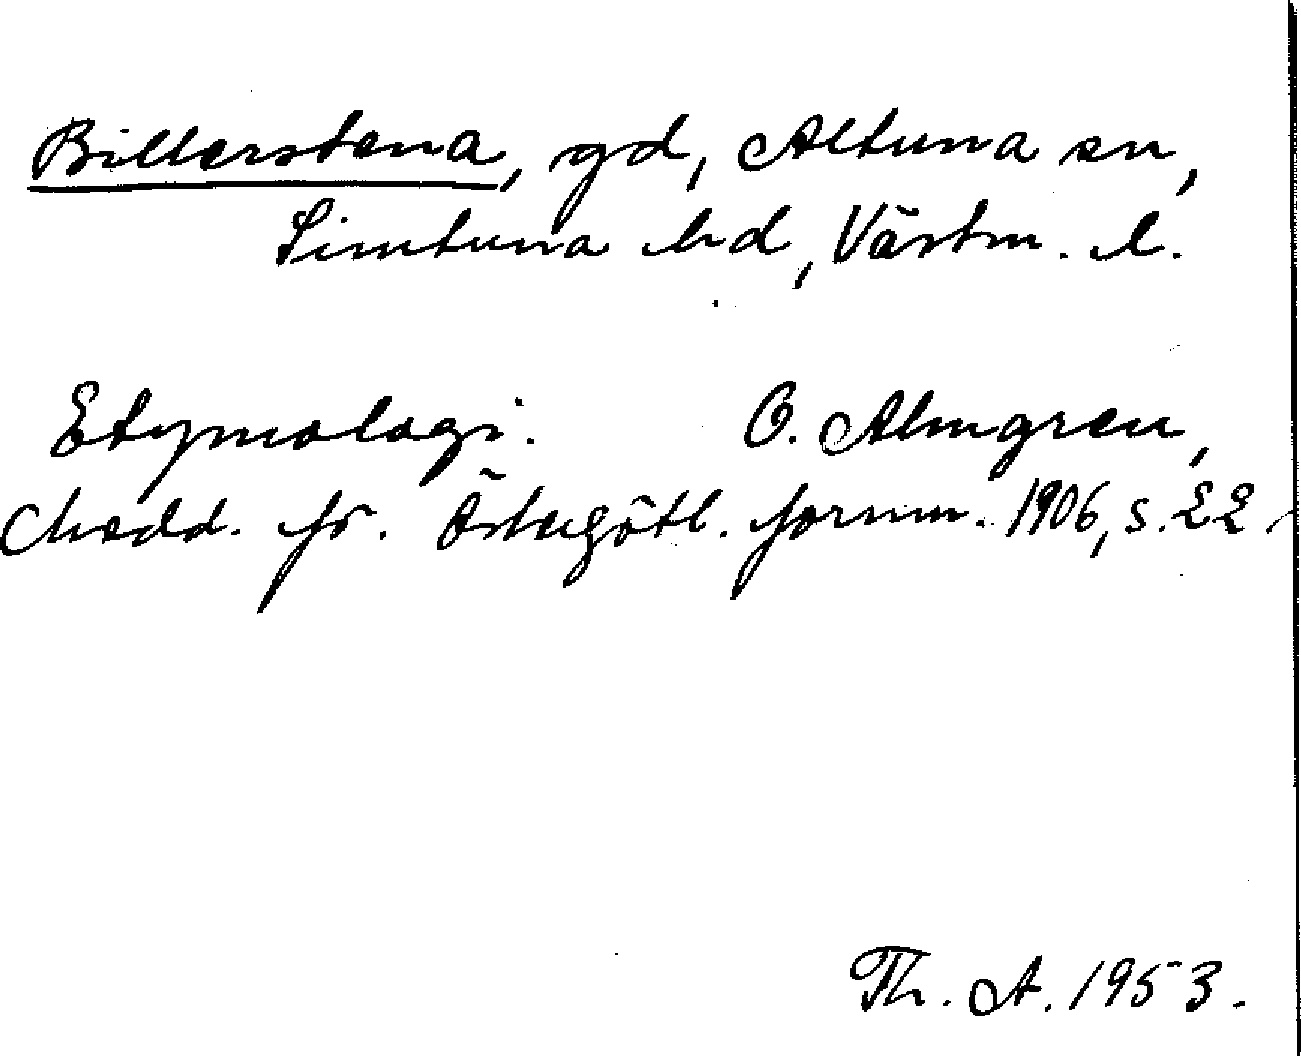 Billerstena, gd, Altuna sn,
Simtuna hd, Västm. l.
Etymologi. O. Almgren,
Medd. fr. Östergötl. fornm. 1906, s. 22
Th. A. 1953.